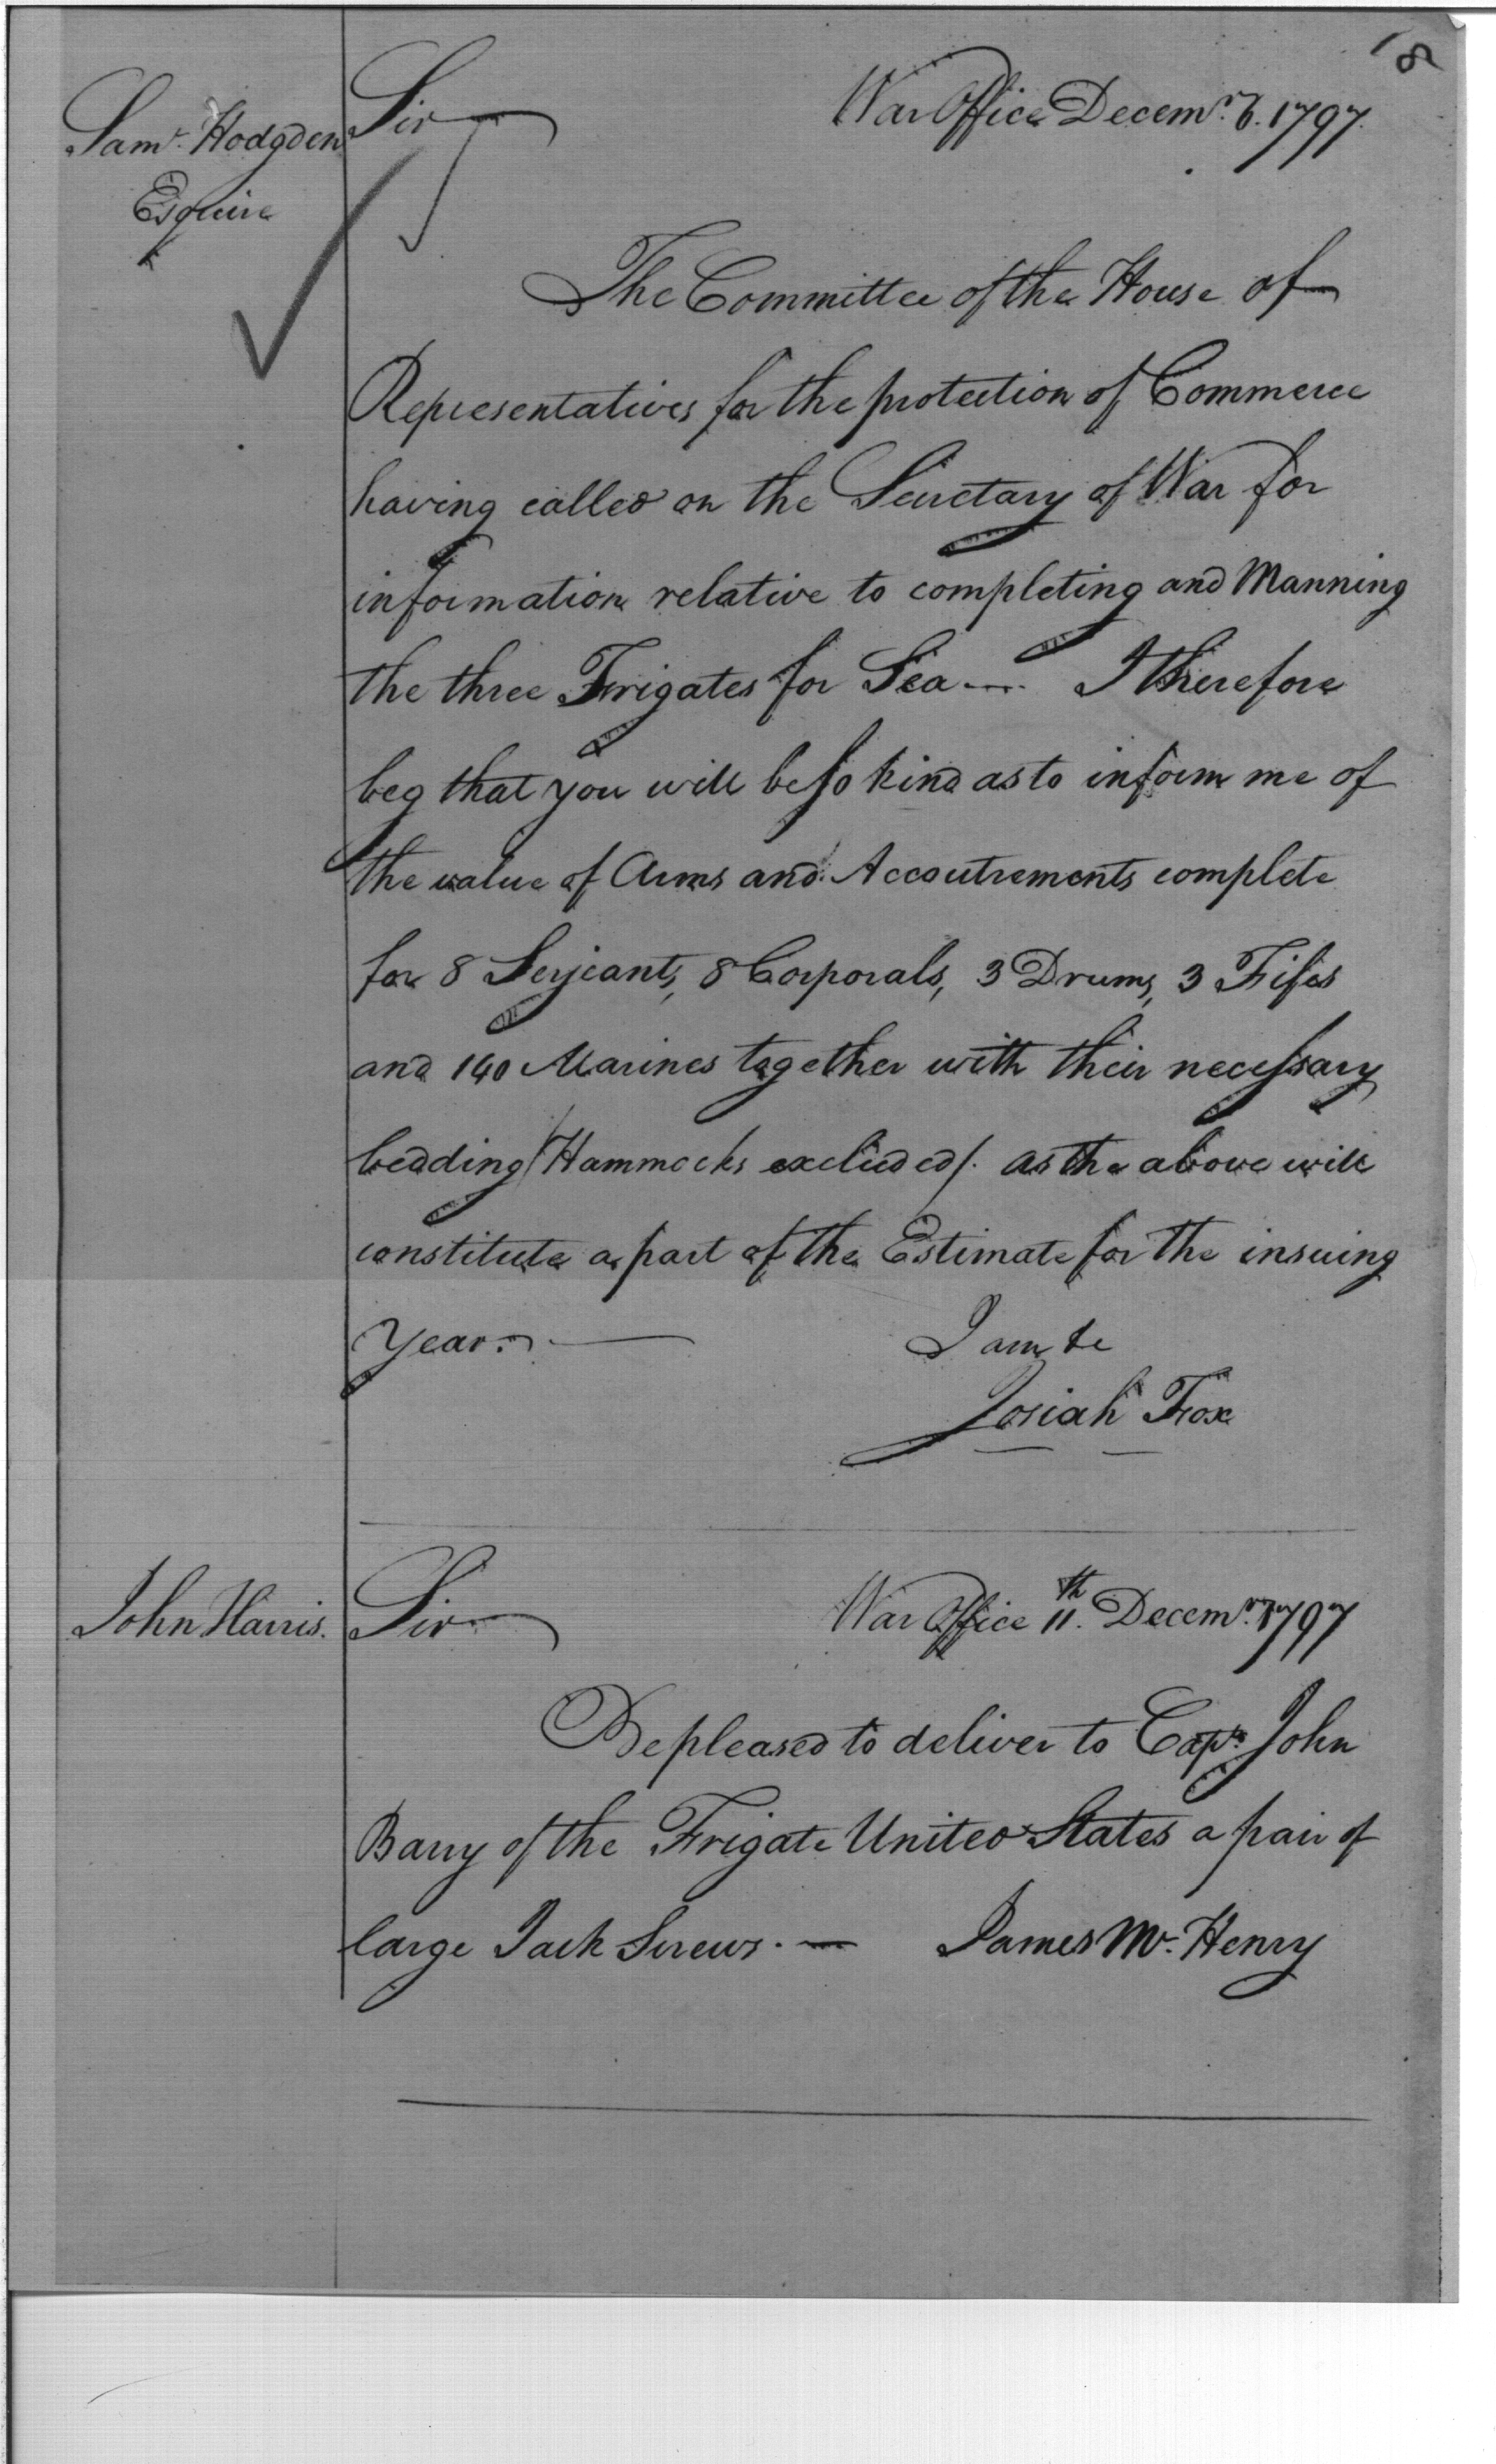 18
Sam.r Hodgden
Esquire
Sir
War Office Decem.r 6. 1797.
The Committee of the House of
Representatives for the protection of Commerce
having called on the Secretary of War for
information relative to completing and Manning
the three Frigates for Sea — I therefore
beg that you will be so kind as to inform me of
the value of Arms and Accoutrements complete
for 8 Serjeants, 8 Corporals, 3 Drums, 3 Fifes
and 140 Marines together with their necessary
bedding /Hammocks excluded/. as the above will
constitute a part of the Estimate for the insuing
Year. —
I am &c
Josiah Fox
John Harris.
Sir
War Office 11.th Decem.r 1797
Be pleased to deliver to Cap.n John
Barry of the Frigate United States a pair of
large Jack Screws. —
James Mc.Henry